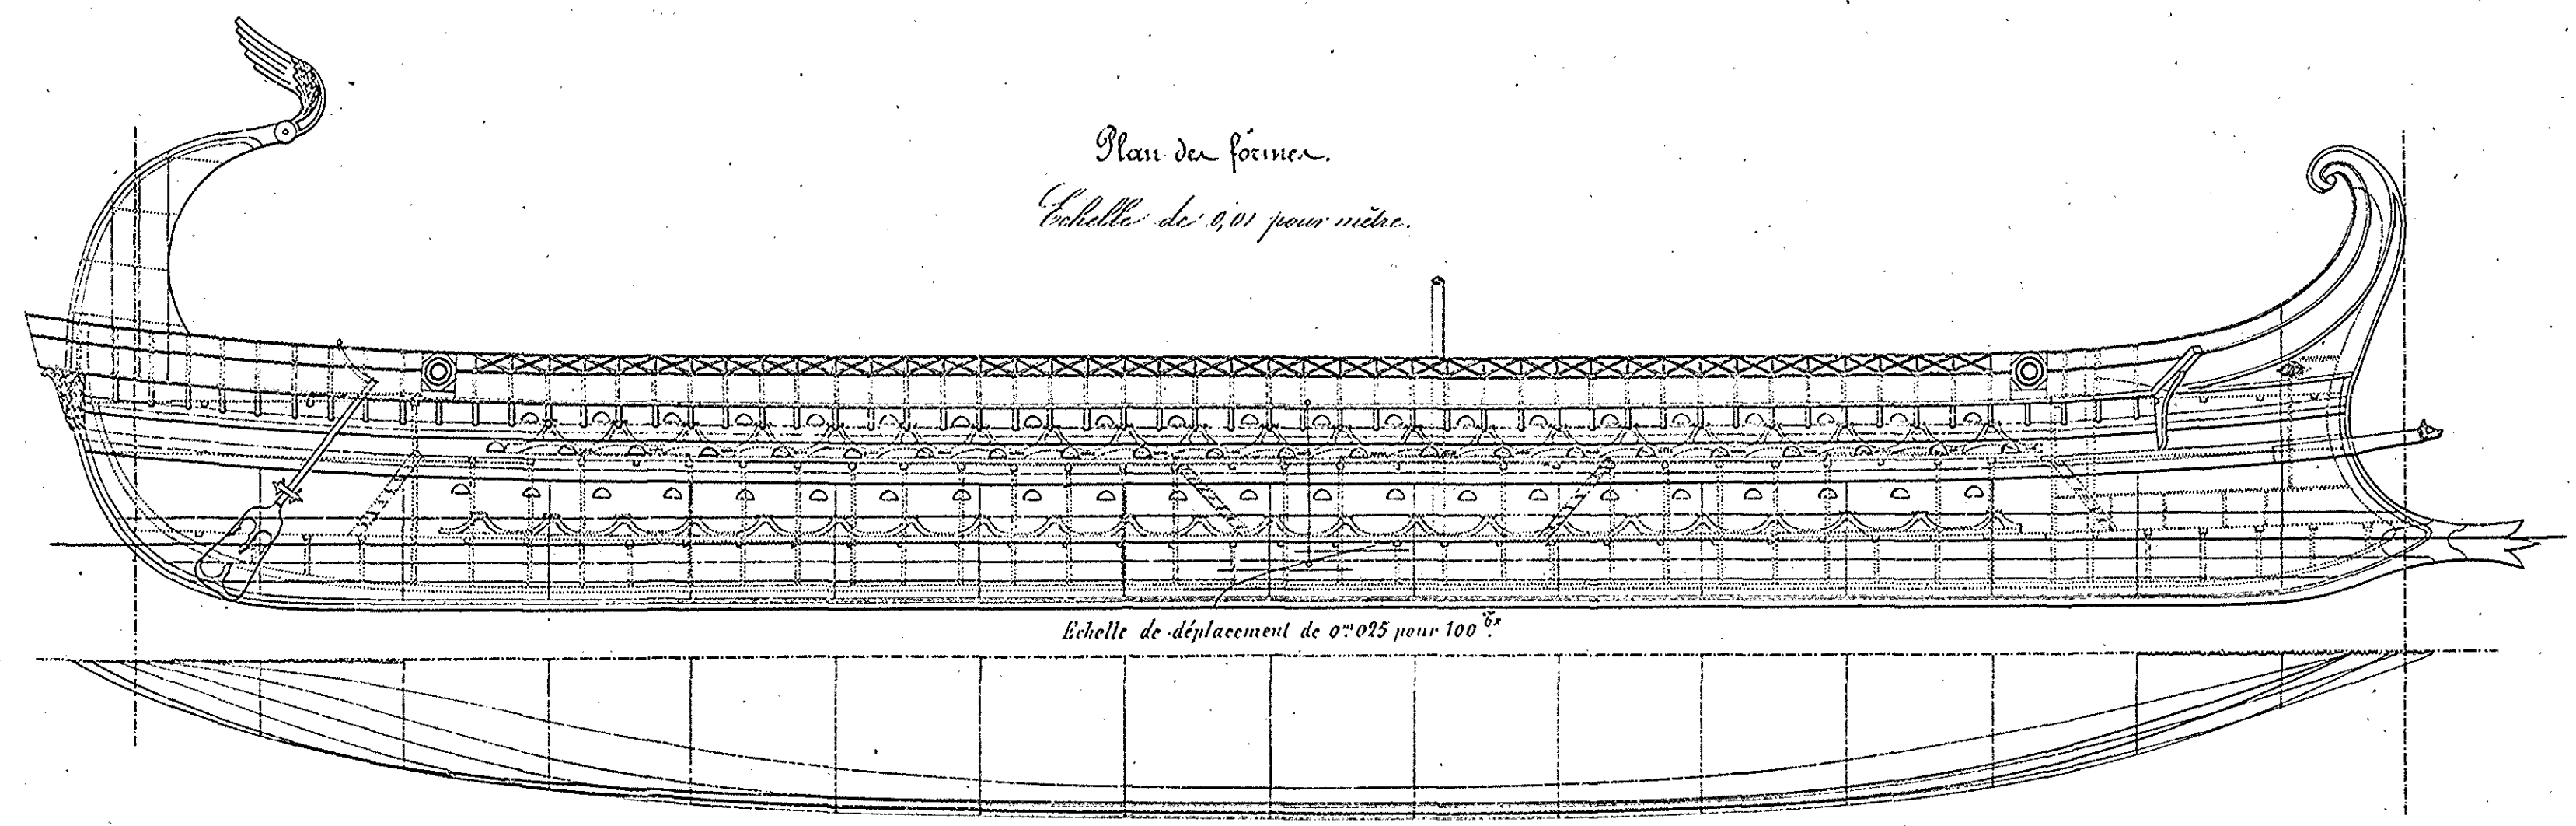 Plan des formes.
Echelle de 0,01 pour mètre.
Echelle de déplacement de 0ᵐ 025 pour 100 ᵗˣ.